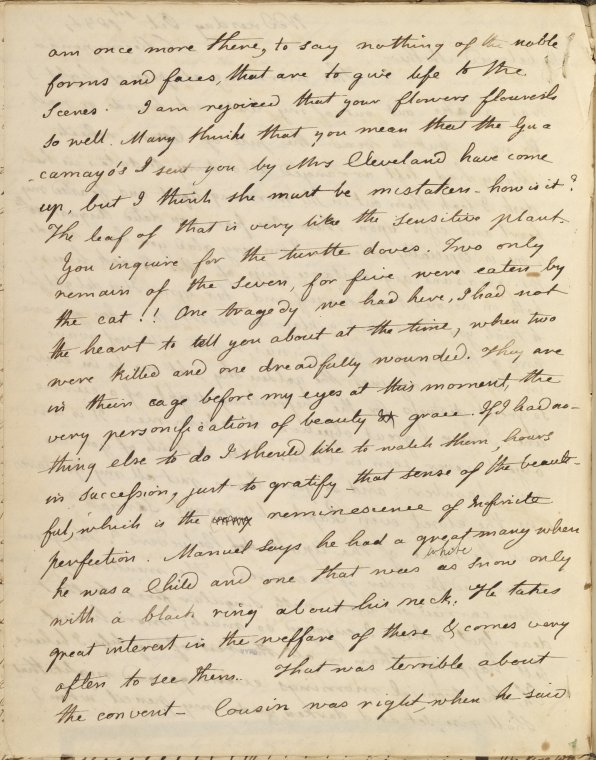 am once more there, to say nothing of the noble
forms and faces, that are to give life to the
Scenes. I am rejoiced that your flowers flourish
so well. Mary thinks that you mean that the Gua
-camayo's I sent you by Mrs Cleveland have come
up, but I think she must be mistaken - how is it?
The leaf of that is very like the sensitive plant.
You inquire for the turtle doves. Two only
remain of the seven, for five were eaten by
the cat!! One tragedy we had here, I had not
the heart to tell you about at the time, when two
were killed and one dreadfully wounded. They are
in their cage before my eyes at this moment, the
very personification of beauty & grace. If I had no-
thing else to do I should like to watch them, hours
in succession, just to gratify that sense of the beauti-
ful, which is the reminescence of Infinite
perfection. Manuel says he had a great many when
he was a Child and one that was white as snow only
with a black ring about his neck. He takes
great interest in the welfare of these & comes very
often to see them. That was terrible about
the convent - Cousin was right, when he said